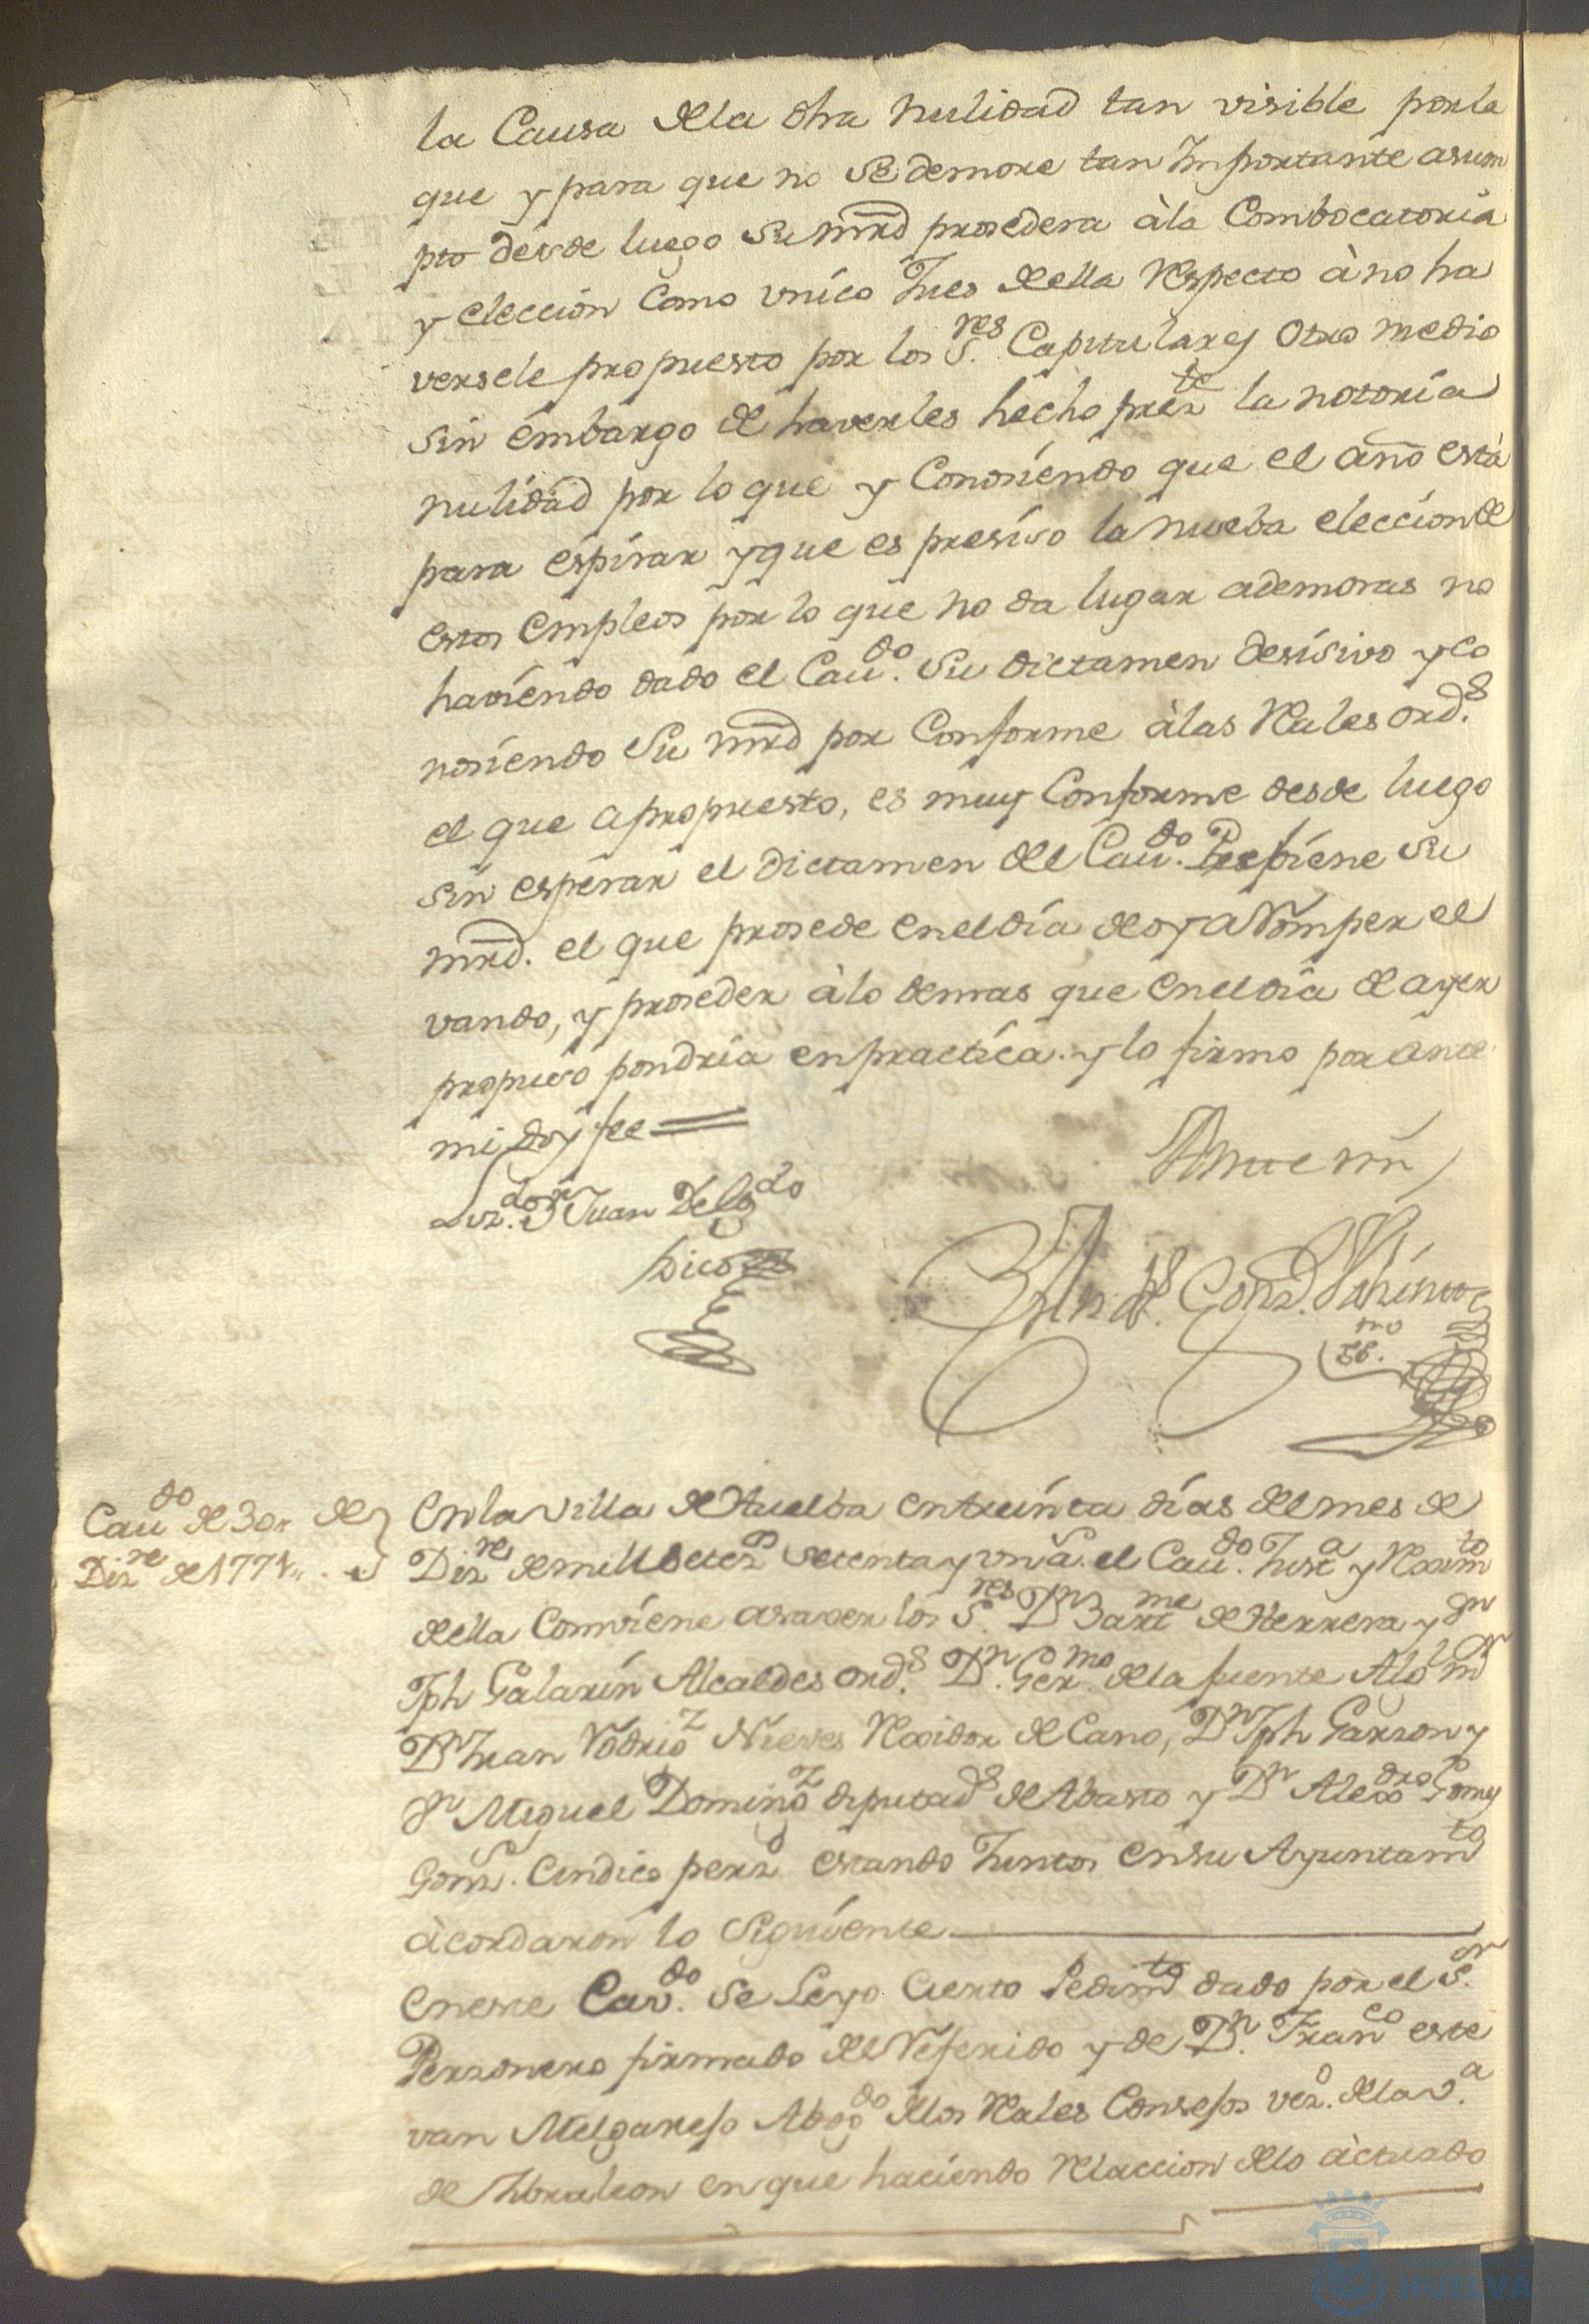 la Causa de la dha nulidad tan visible por la
que y para que no se demore tan Importante asum
pto desde luego su mrd prosedera à la Combocatoria
y eleccion Como vnico Jues de ella Respecto à no ha
versele propuesto por los S.res Capitulares Otro medio
sin embargo de haverles hecho prez.te la notoria
nulidad por lo que y Conosiendo que el año està
para espirar y que es presiso la nueba eleccion de
estos empleos por lo que no da lugar ademoras no
haviendo dado el Cau.do su dictamen desisivo y co
nosiendo Su mrd por Conforme à las Rales ord.s
el que a propuesto, es muy Conforme desde luego
sin esperar el dictamen del Cau.do Prefiene su
mrd. el que prosede en el dia de oy a Romper el
vando, y proseder à lo demas que en el dia de ayer
propuso pondria en practica. y lo firmo por ante
mi doy fee
Liz.do Dn Juan Delg.do
Pico
Ante mi
And.s Gonz.
no
Cau.do de 30 de
Diz.re de 1771
En la Villa de Huelba en treinta dias del mes de
Diz.re de mill setez.s setenta y vn a.s el Cau.do Just.a y Rexim.to
de ella Combiene asaver los S.res Dn Bart.me de Herrera y Dn
Jph Galarin Alcaldes ord.s Dn Ger.mo de la fuente Alg.l m.or
Dn Juan Rodrig.z Nieves Rexidor de Cano, Dn Jph Garzon y
Dn Miguel Doming.z diputad.s de Abasto y Dn Alexo
Gonz. Cindico perz.o estando Juntos en su Ayuntam.to
àcordaron lo siguiente
En este Cav.do se Leyo Cierto Pedim.to dado por el S.or
Personero firmado del Referido y de Dn Fran.co este
van Melgarejo Abog.do de los Rales Consejos vez.o de la V.a
de Jibraleon en que haciendo Relaccion de lo àctuado
HUELVA